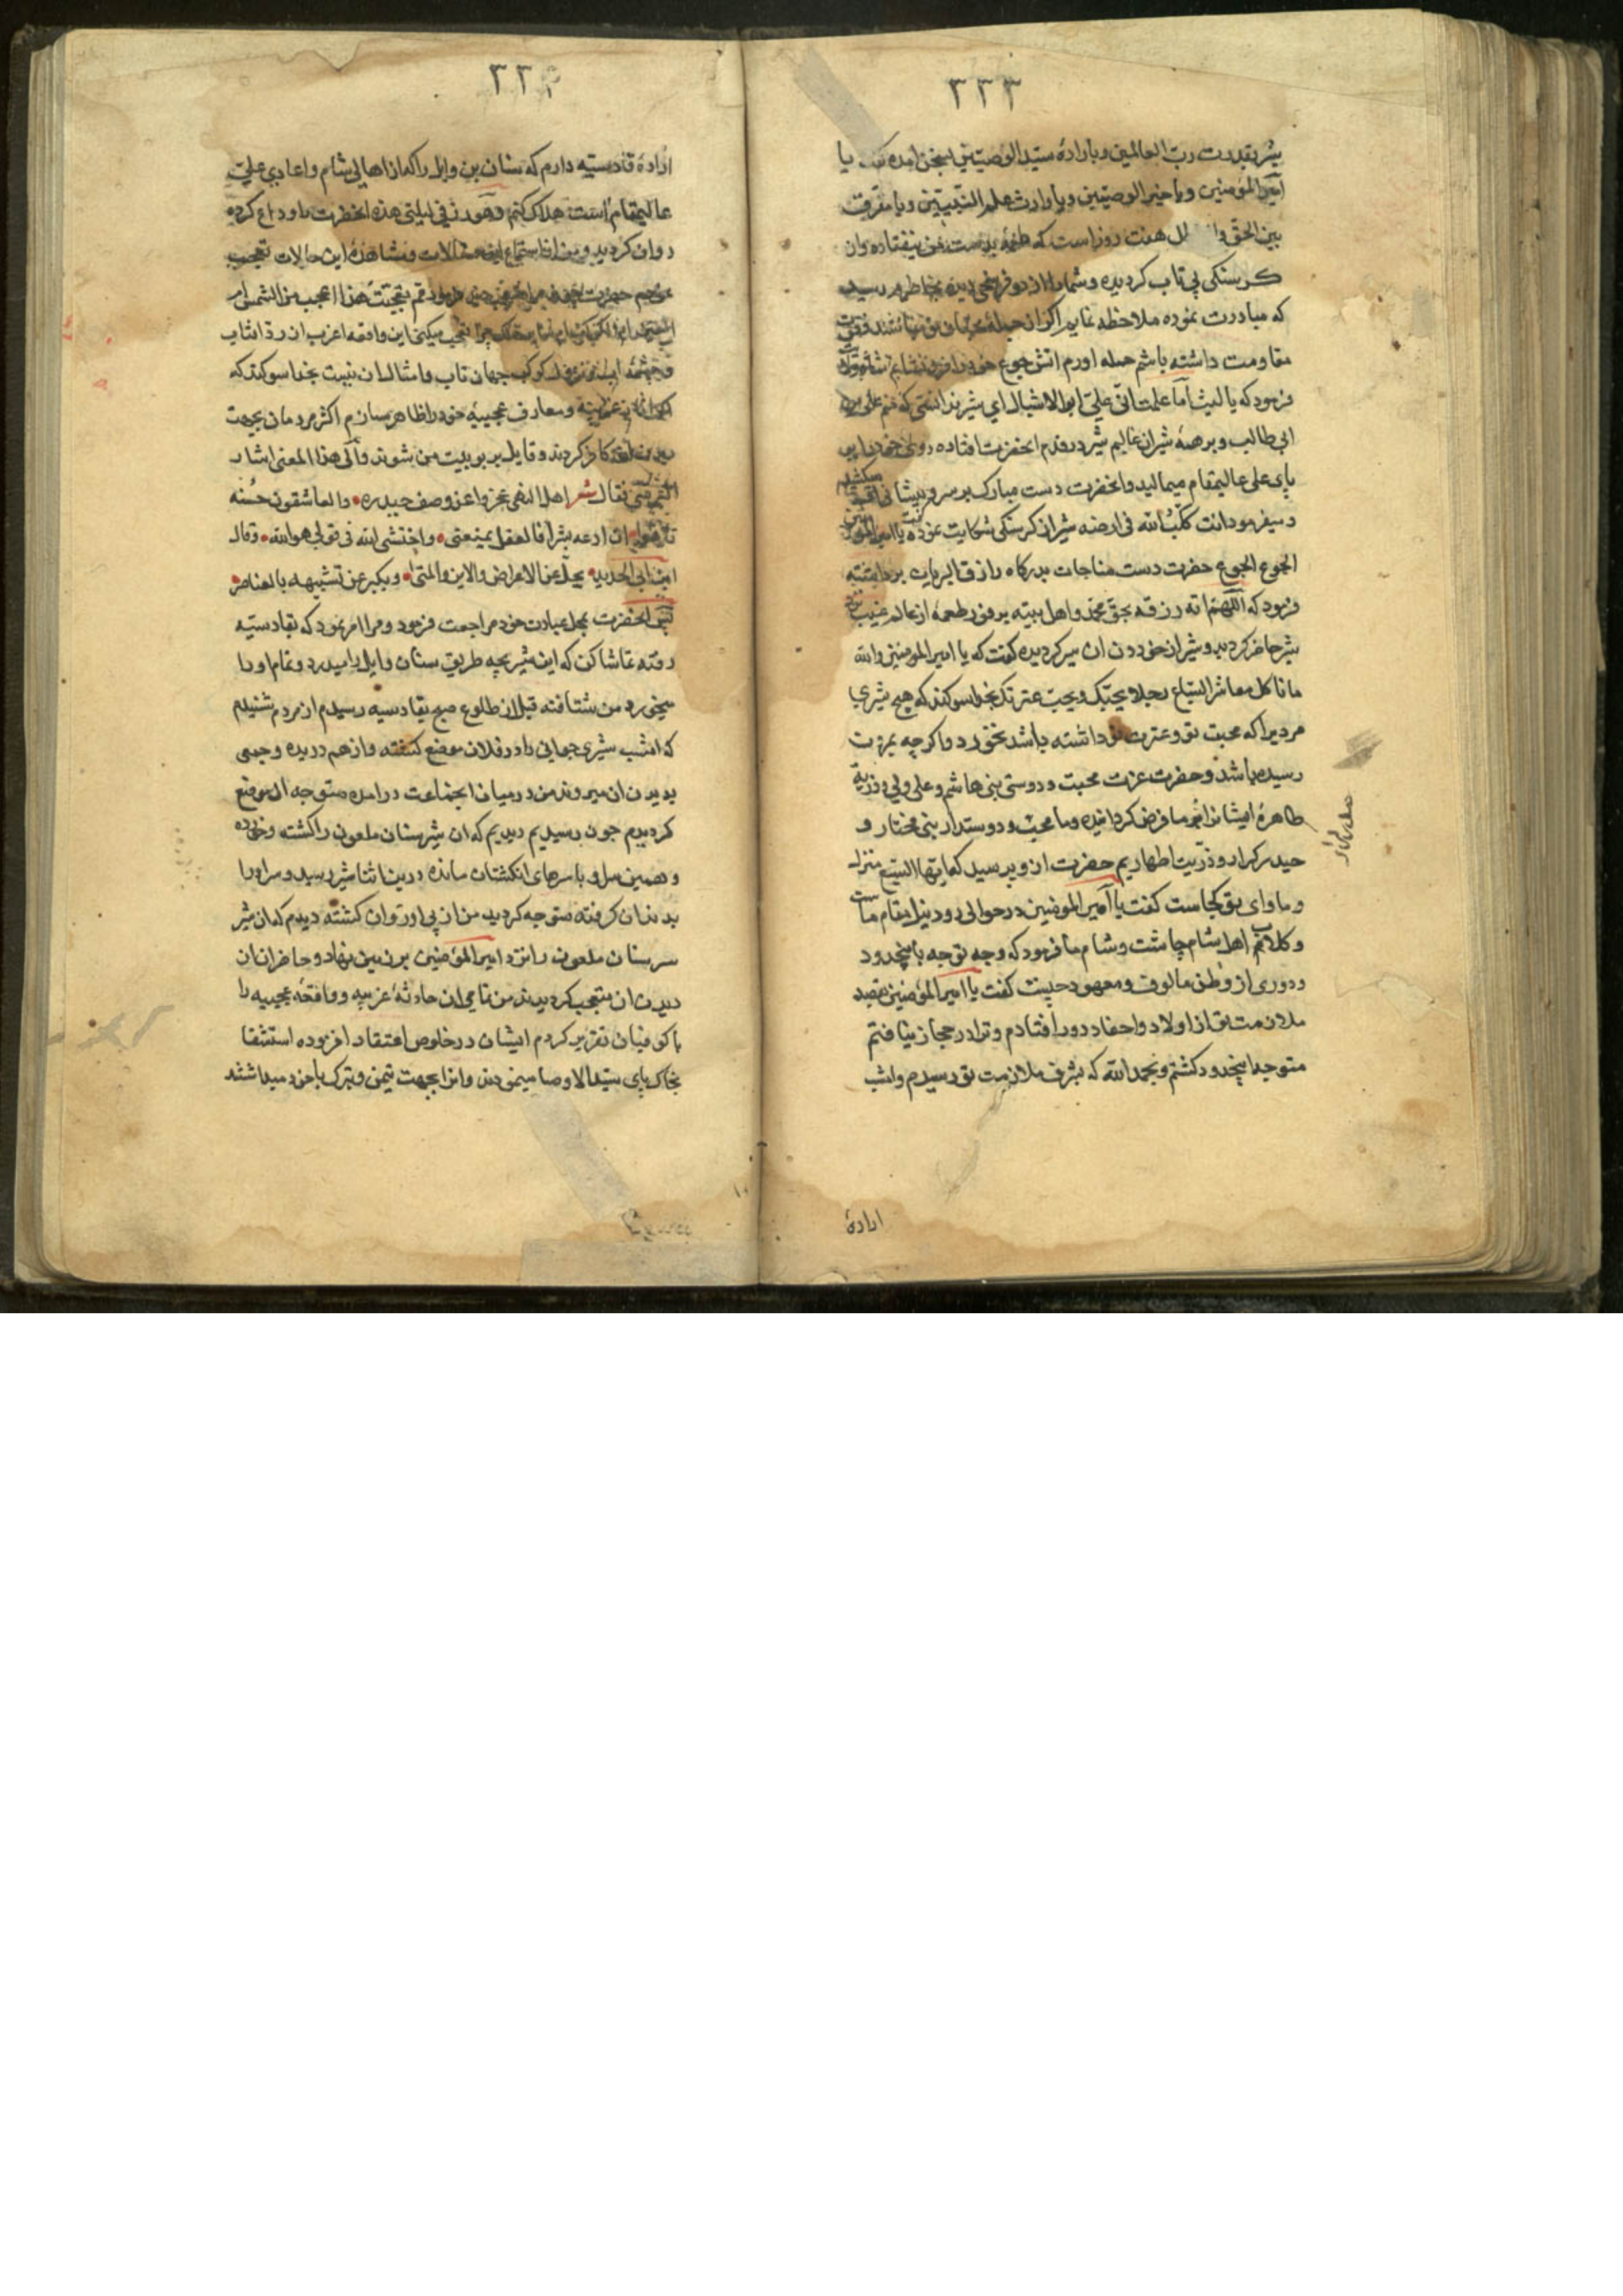 ٣٣٣
شیر بقدرت رب العالمین و بارادهٔ سید الوصیین بسخن امده کفت یا
امیر المؤمنین ویا خیر الوصیین ویا وارث علم النبیین ویا مفرق
بین الحق و هفت روز است که طعمه بدست من نیفتاده وان
کرسنکی بی تاب کردیده وشمارا از دو فرسخی دیده بخاطرم رسید
که مبادرت نموده ملاحظه نمایم اکر از جملهٔ محبان من نباشند وقوت
مقاومت داشته باشم حمله اورم اتش جوع خودرا فرو نشانم
فرمود که یا لیث اما علمت انی علی ابو الاشبال ای شیر ندانستی که منم علی بن
ابی طالب و شیران عالیم شیر در قدم انحضرت افتاده روی خودرا بر
پای علی عالیمقام میمالید وانحضرت دست مبارک بر سر و پیشانی میکشید
و میفرمود انت کلب الله فی ارضه شیر از کرسنکی شکایت نموده کفت یا امیر المؤمنین
الجوع الجوع حضرت دست مناجات بدرکاه رازق البریات برداشته
فرمود که اللهم اته رزقه بحق محمد واهل بیته بر فور طعمهٔ از عالم غیب نزد
شیر حاضر کردید و شیر از خوردن ان سیر کردیده کفت که یا امیر المومنین والله
ما ناکل معاشر السباع رجلا یحبک ویحب عترتک بخدا سوکند که هیچ شیری
مردیرا که محبت تو وعترت تو داشته باشد نخورد واکرچه بمرت
رسیده باشد وحضرت عزت محبت ودوستی بنی هاشم وعلی ولی وذریهٔ
طاهرهٔ ایشانرا بر ما فرض کردانیده وما محب ودوستدار نبی مختار و
حیدر کرار وذریت اطهاریم حضرت از و پرسید که ایها السبع منزل
وماوای تو کجاست کفت یا امیر المومنین در حوالی رود نیل مقام ماست
وکلاب اهل شام چاشت وشام ما فرمود که وجه توجه باینحدود
ودوری از وطن مالوف ومعهود چیست کفت یا امیر المؤمنین بقصد
ملازمت تو از اولاد واحفاد دور افتادم وترا در حجاز نیافتم
متوجه اینحدود کشتم وبحمد الله که بشرف ملازمت تو رسیدم وامشب
ارادهٔ
٣٣٤
ارادهٔ قادسیه دارم که سنان بن وایل را که از اهالی شام واعادی علی
عالیمقام است هلاک کنم وهو رزقی لیلتی هذه انحضرت با وداع کرده
روان کردید ومن از استماع این مقالات ومشاهدهٔ این حالات تعجب
نمودم حضرت فرمود مم تعجبت هذا اعجب من الشمس ام
تعجب میکنی این واقعه اغرب از رد افتاب
وچشمهٔ اب کوکب جهان تاب وامثال ان نیست بخدا سوکند که
اکر غریبه ومعارف عجیبهٔ خودرا ظاهر سازم اکثر مردمان بجهت
کافر کردند وقایل بربوبیت من شوند والی هذا المعنی اشار
فقال شعر اهل النهی عجزوا عن وصف حیدره والعاشقون حسنه
تاهوا ان ادعه بشرا فالعقل یمنعنی واختشی الله فی قولی هو الله وقال
ابن ابی الحدید یجل عن الاعراض والاین والمتی ویکبر عن تشبیهه بالعناصر
پس انحضرت بمحل عبادت خود مراجعت فرمود ومرا امر نمود که بقادسیه
رفته تماشا کن که این شیر بچه طریق سنان وایل را میدرد وتمام اورا
میخورد من شتافته قبل از طلوع صبح بقادسیه رسیدم از مردم شنیدم
که امشب شیری جوانی را در فلان موضع کرفته واز هم دریده وجمعی
بدیدن ان میروند من در میان انجماعت درامده متوجه ان موضع
کردیدم چون رسیدیم دیدیم که ان شیر سنان ملعون را کشته وخورده
وهمین سر او با سرهای انکشتان مانده درین اثنا شیر رسید وسر اورا
بدندان کرفته متوجه کردید من از پی او روان کشته دیدم که ان شیر
سر سنان ملعون را نزد امیر المؤمنین بر زمین نهاد وحاضران از
دیدن ان متعجب کردیدند من تمامی ان حادثهٔ غریبه وواقعهٔ عجیبه را
با کوفیان تقریر کردم ایشان در خلوص اعتقاد افزوده استشفا
بخاک پای سید الاوصیا مینمودند وانرا بجهت تیمن وتبرک با خود میداشتند